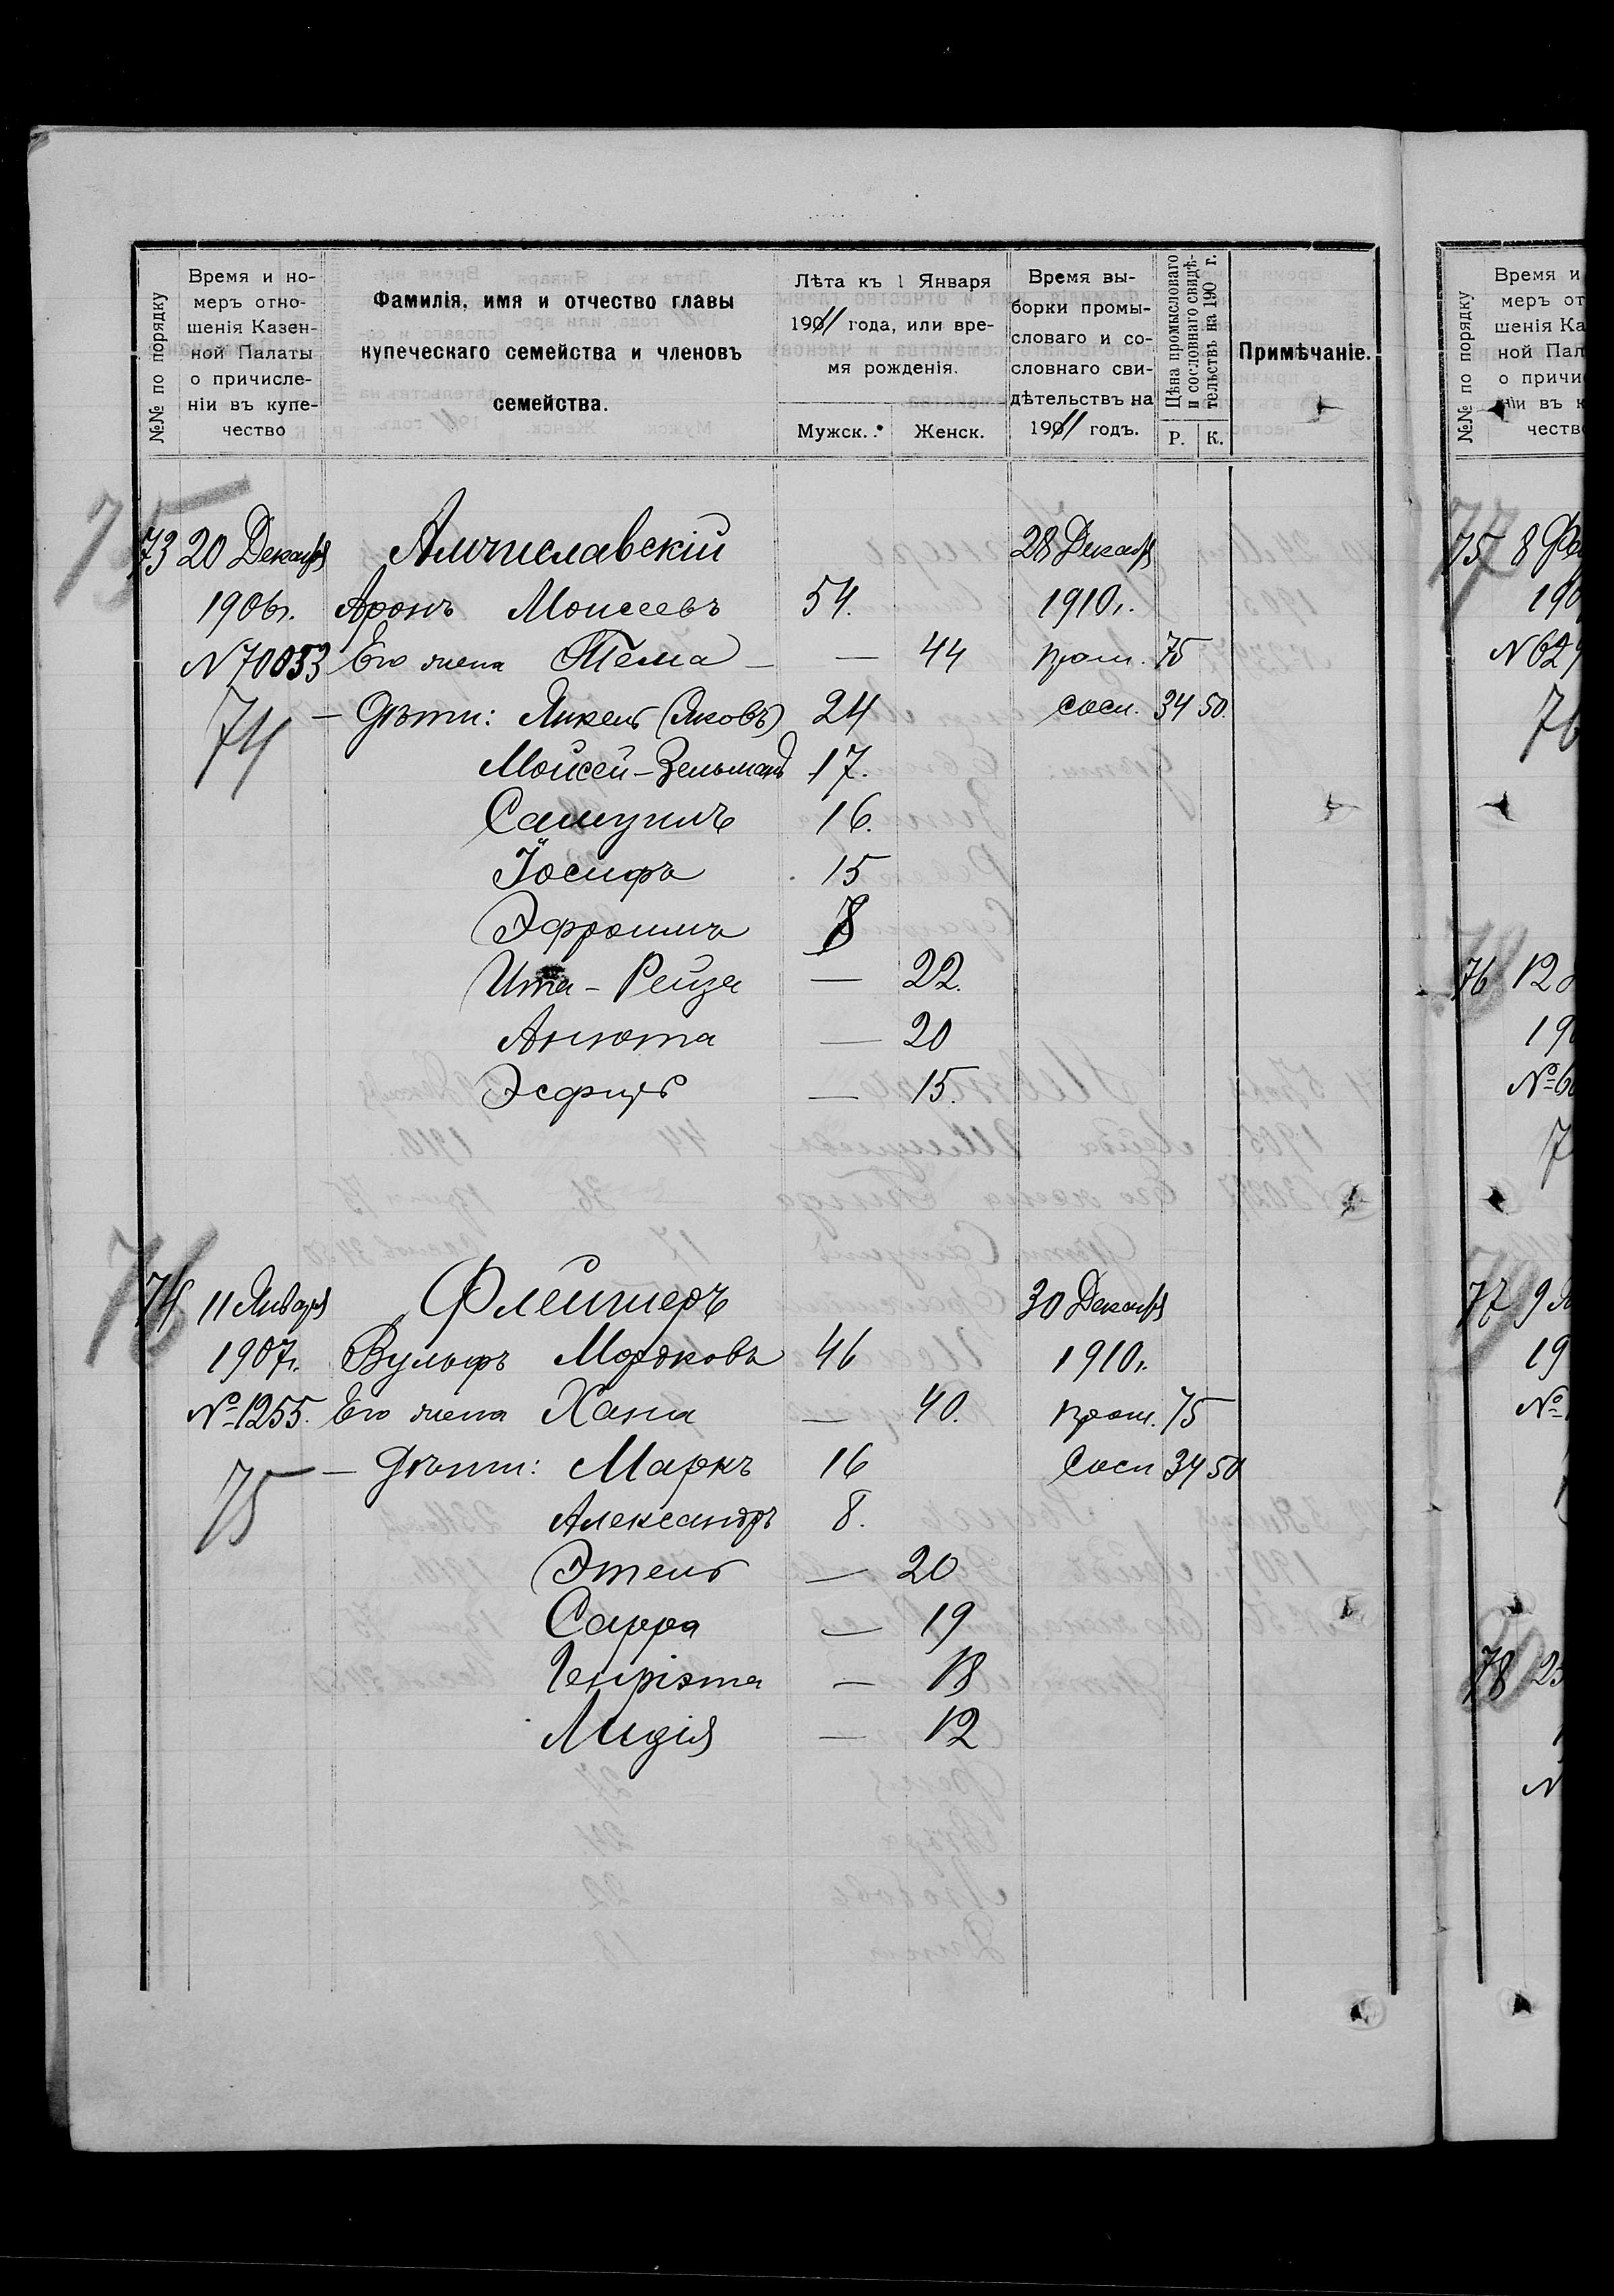 №№ по порядку
Время и но-
меръ отно-
шенія Казен-
ной Палаты
о причисле-
ніи въ купе-
чество
Фамилія, имя и отчество главы
купеческаго семейства и членовъ
семейства.
Лѣта къ 1 Января
1911 года, или вре-
мя рожденія.
Мужск.
Женск.
Время вы-
борки промы-
словаго и со-
словнаго сви-
дѣтельствъ на
1911 годъ.
Цѣна промысловаго
и сословнаго свидѣ-
тельствъ на 190 г.
Р. К.
Примѣчаніе.
75
73 20 Декабря Амчиславскій 28 Декабр
1906 г. Аронъ Моисеевъ 54. 1910 г.
N 70053 Его жена Тема — — 44 пром. 75
74 — Дѣти: Янкель (Яковъ) 24 сосл. 34 50.
Мойсей-Зельманъ 17.
Самуилъ 16.
Іосифъ 15
Эфроимъ 8
Ита-Рейза — 22.
Анюта — 20
Эсфирь — 15.
76
74 11 Января Флейшеръ 30 Декабря
1907 г. Вульфъ Мордковъ 46 1910 г.
№ 1255. Его жена Хана — 40. пром. 75
75 — Дѣти: Маркъ 16 Сосл 34 50
Александръ 8.
Этель — 20
Сарра — 19
Генріэта — 18
Лидія — 12
№№ по порядку
Время и
меръ от
шенія Ка
ной Пал
о причи
ніи въ к
честв
77
75 8 Фе
190
N 629
76
78
76 12
190
№ 6
7
79
77 9
19
№
80
78 23
N